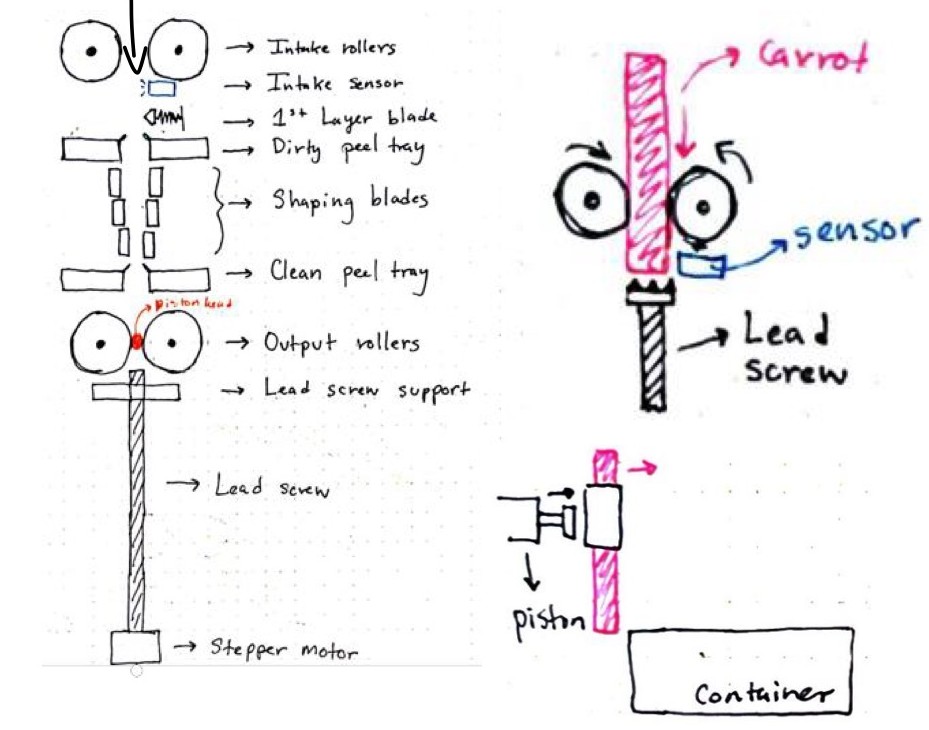 Intake rollers
Intake sensor
1st Layer blade
Dirty peel tray
Shaping blades
Clean peel tray
piston head
Output rollers
Lead screw support
Lead screw
Stepper motor
Carrot
sensor
Lead
screw
piston
Container